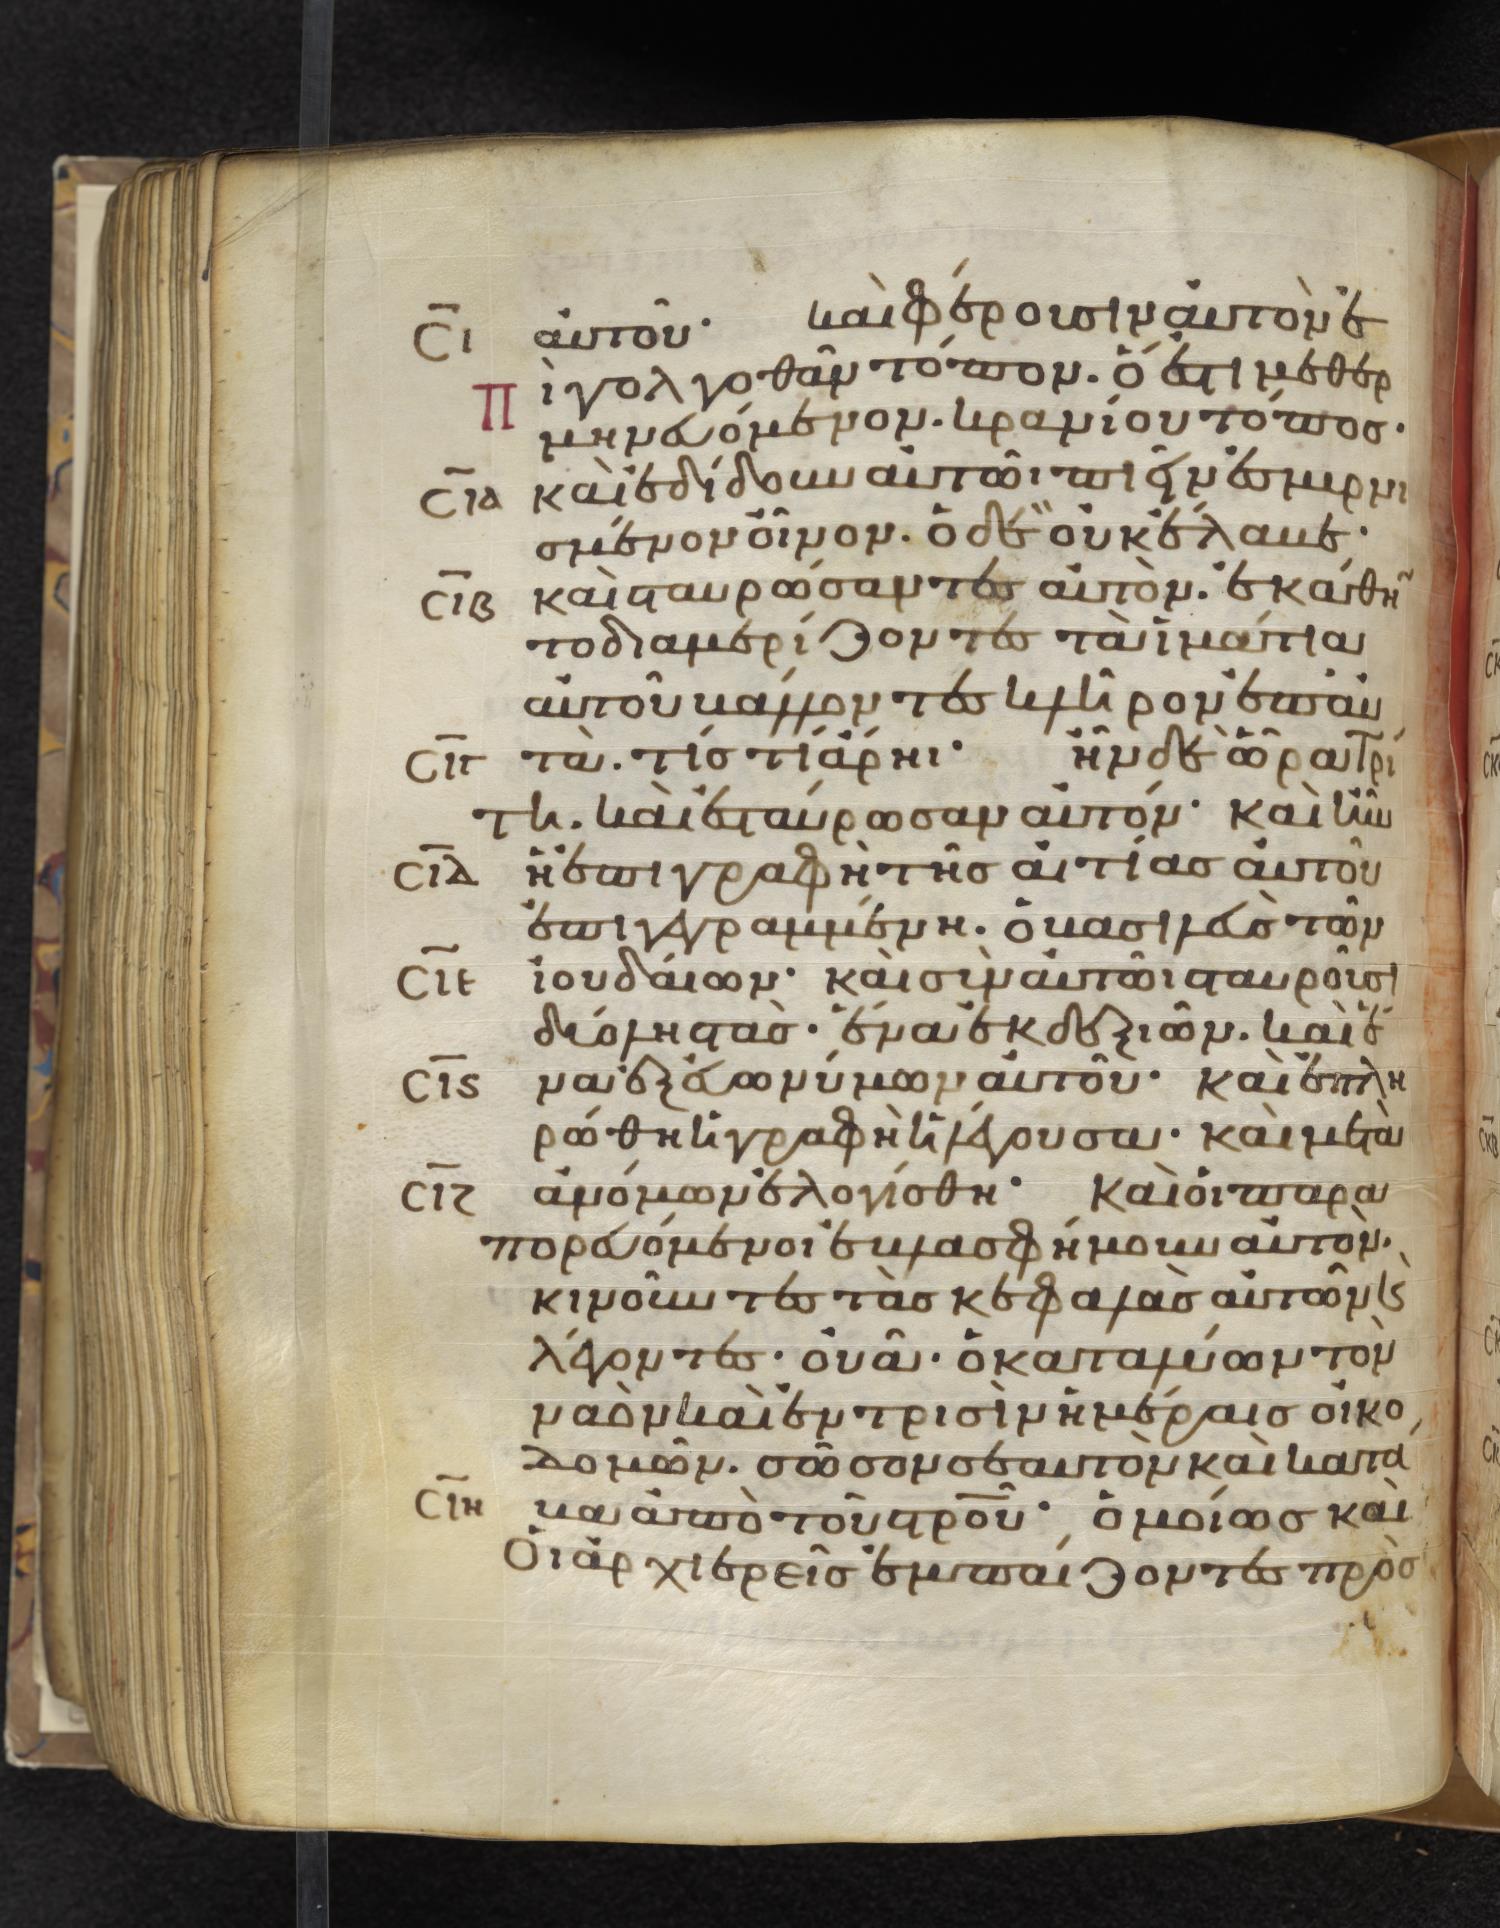 σ̅ι̅ αὐτοῦ· καὶ φέρουσιν αὐτὸν ἐ
Π ὶ γολγοθᾶν τόπον. ὅ ἐστι μεθερ
μηνευόμενον. κρανίου τόπος·
σ̅ι̅α̅ καὶ ἐδίδουν αὐτῶι πιεῖν ἐσμυρνι
σμένον οἶνον. ὁ δὲ οὐκ ἔλαβε·
σ̅ι̅β̅ καὶ σταυρώσαντες αὐτὸν. ἐκάθην
το διαμερίζοντες τὰ ἱμάτια
αὐτοῦ βάλλοντες κλῆρον ἐπ' αὐ
σ̅ι̅γ̅ τὰ. τίς τί ἄρηι· ἦν δὲ ὥρα τρί
τη. καὶ ἐσταύρωσαν αὐτόν· καὶ ἦν
σ̅ι̅δ̅ ἡ ἐπιγραφὴ τῆς αἰτίας αὐτοῦ
ἐπιγεγραμμένη. ὁ βασιλεὺς τῶν
σ̅ι̅ε̅ ἰουδαίων· καὶ σὺν αὐτῶι σταυροῦσι
δύο ληστὰς· ἕνα ἐκ δεξιῶν. καὶ ἕ
σ̅ι̅ς̅ να ἐξ εὐωνύμων αὐτοῦ· καὶ ἐπλη
ρώθη ἡ γραφὴ ἡ λέγουσα· καὶ μετὰ
σ̅ι̅ζ̅ ἀνόμων ἐλογίσθη· Καὶ οἱ παρα
πορευόμενοι ἐβλασφήμουν αὐτὸν.
κινοῦντες τὰς κεφαλὰς αὐτῶν ϗ
λέγοντες· οὐᾶ· ὁ καταλύων τὸν
ναὸν καὶ ἐν τρισὶν ἡμέραις οἰκο
δομῶν. σῶσον σεαυτὸν καὶ κατά
σ̅ι̅η̅ βα ἀπὸ τοῦ στρο̅υ̅· ὁμοίως καὶ
Οἱ ἀρχιερεῖς ἐμπαίζοντες πρὸς